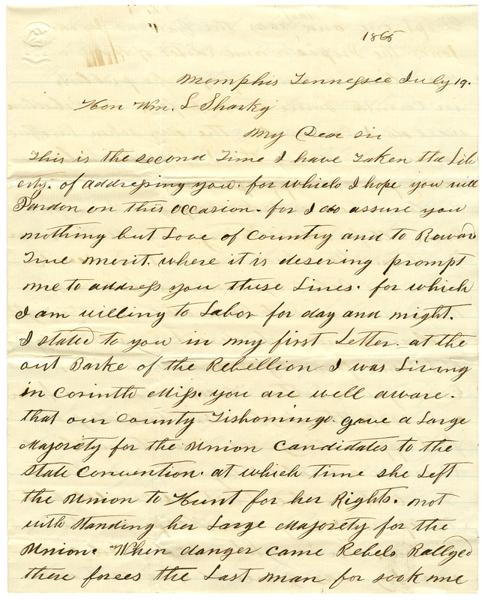 1865
Memphis Tennessee July 19.
Hon Wm. L Sharky
My Dear Sir
This is the second Time I have Taken the Lib
erty. of addressing you. for which I hope you will
Pardon on this occasion. for I do assure you
nothing but Love of Country and to Reward
True merit. where it is deserving prompt
me to address you these Lines. for which
I am willing to Labor for day and night.
I stated to you in my first Letter. at the
out Barke of the Rebellion I was Living
in Corinth Miss. you are well aware.
that our County Tishomingo. gave a Large
Majority for the Union Candidates to the
State Convention. at which time she Left
the Union to Hunt for her Rights. not
with standing her Large Majority for the
Union. When danger came Rebels Rallyed
there forces the Last man for sook me